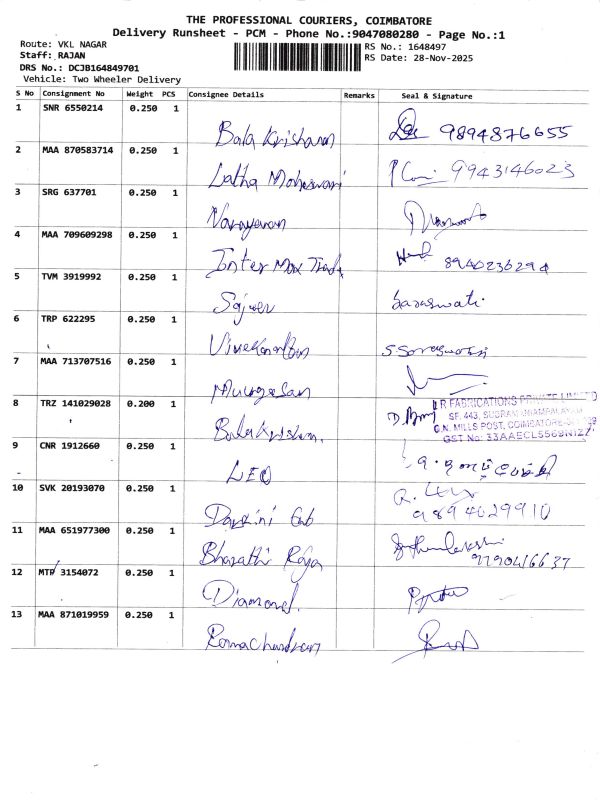 THE PROFESSIONAL COURIERS, COIMBATORE
Delivery Runsheet - PCM - Phone No.:9047080280 - Page No.:1
Route: VKL NAGAR
Staff: RAJAN
DRS No.: DCJB164849701
Vehicle: Two Wheeler Delivery
RS No.: 1648497
RS Date: 28-Nov-2025
S No Consignment No Weight PCS Consignee Details Remarks Seal & Signature
1 SNR 6550214 0.250 1 Bala Krishanan 9894876655
2 MAA 870583714 0.250 1 Latha Moheswari 9943146023
3 SRG 637701 0.250 1 Narayanan
4 MAA 709609298 0.250 1 Inter Max Trade 8940236294
5 TVM 3919992 0.250 1 Sajeev Saraswati
6 TRP 622295 0.250 1 S Saraswathi
7 MAA 713707516 0.250 1 Murugesan
8 TRZ 141029028 0.200 1 Balakrishan.
R FABRICATIONS PRIVATE LIMITED
SF. 443, SUBRAMANIAMPALAYAM
G.N. MILLS POST, COIMBATORE
GST No: 33AAECL5569N1ZZ
9 CNR 1912660 0.250 1 LEO
10 SVK 20193070 0.250 1 9894029910
11 MAA 651977300 0.250 1 Bharathi Raja
12 MTP 3154072 0.250 1 Diamond.
13 MAA 871019959 0.250 1 Ramachandran